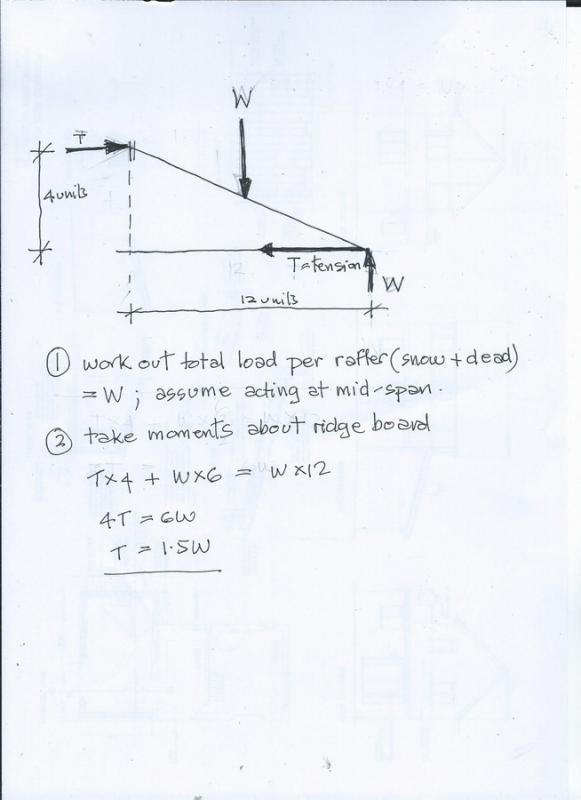 W
T
4 units
T=tension
W
12
12 units
① work out total load per rafter (snow + dead)
= W ; assume acting at mid-span.
② take moments about ridge board
T×4 + W×6 = W×12
4T = 6W
T = 1.5W